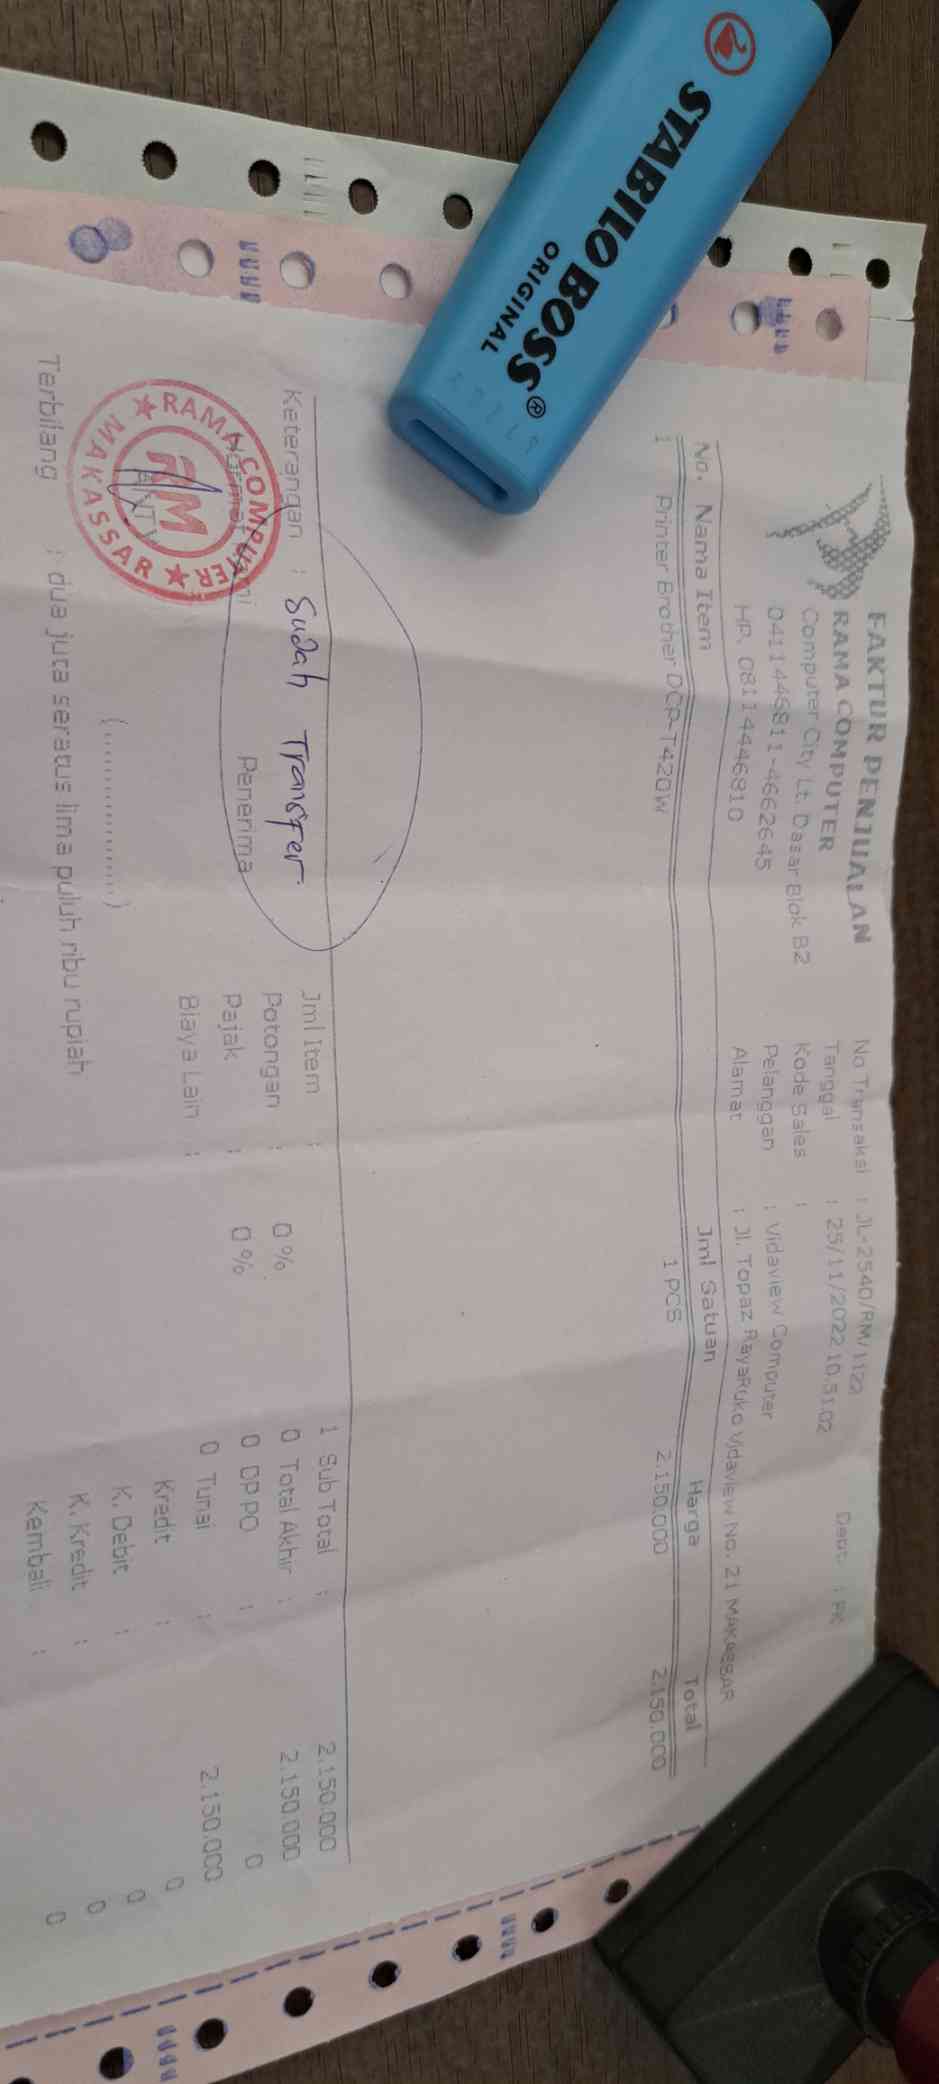 STABILO BOSS®
ORIGINAL
FAKTUR PENJUALAN
RAMA COMPUTER
Computer City Lt. Dasar Blok B2
0411446811-4662645
HP. 08114446810
No Transaksi : JL-2540/RM/1122
Tanggal : 25/11/2022 10.51.02 Dept. : PK
Kode Sales :
Pelanggan : Vidaview Computer
Alamat : Jl. Topaz RayaRuko Vidaview No. 21 MAKASSAR
No. Nama Item Jml Satuan Harga Total
1 Printer Brother DCP-T420W 1 PCS 2.150.000 2.150.000
Keterangan : Sudah Transfer
Jml Item : 1 Sub Total : 2.150.000
Potongan : 0 % 0 Total Akhir : 2.150.000
Pajak : 0 % 0 DP PO : 0
Biaya Lain : 0 Tunai : 2.150.000
Kredit : 0
K. Debit : 0
K. Kredit : 0
Kembali : 0
Penerima
(................)
RAMA COMPUTER
RM
MAKASSAR
Terbilang : dua juta seratus lima puluh ribu rupiah